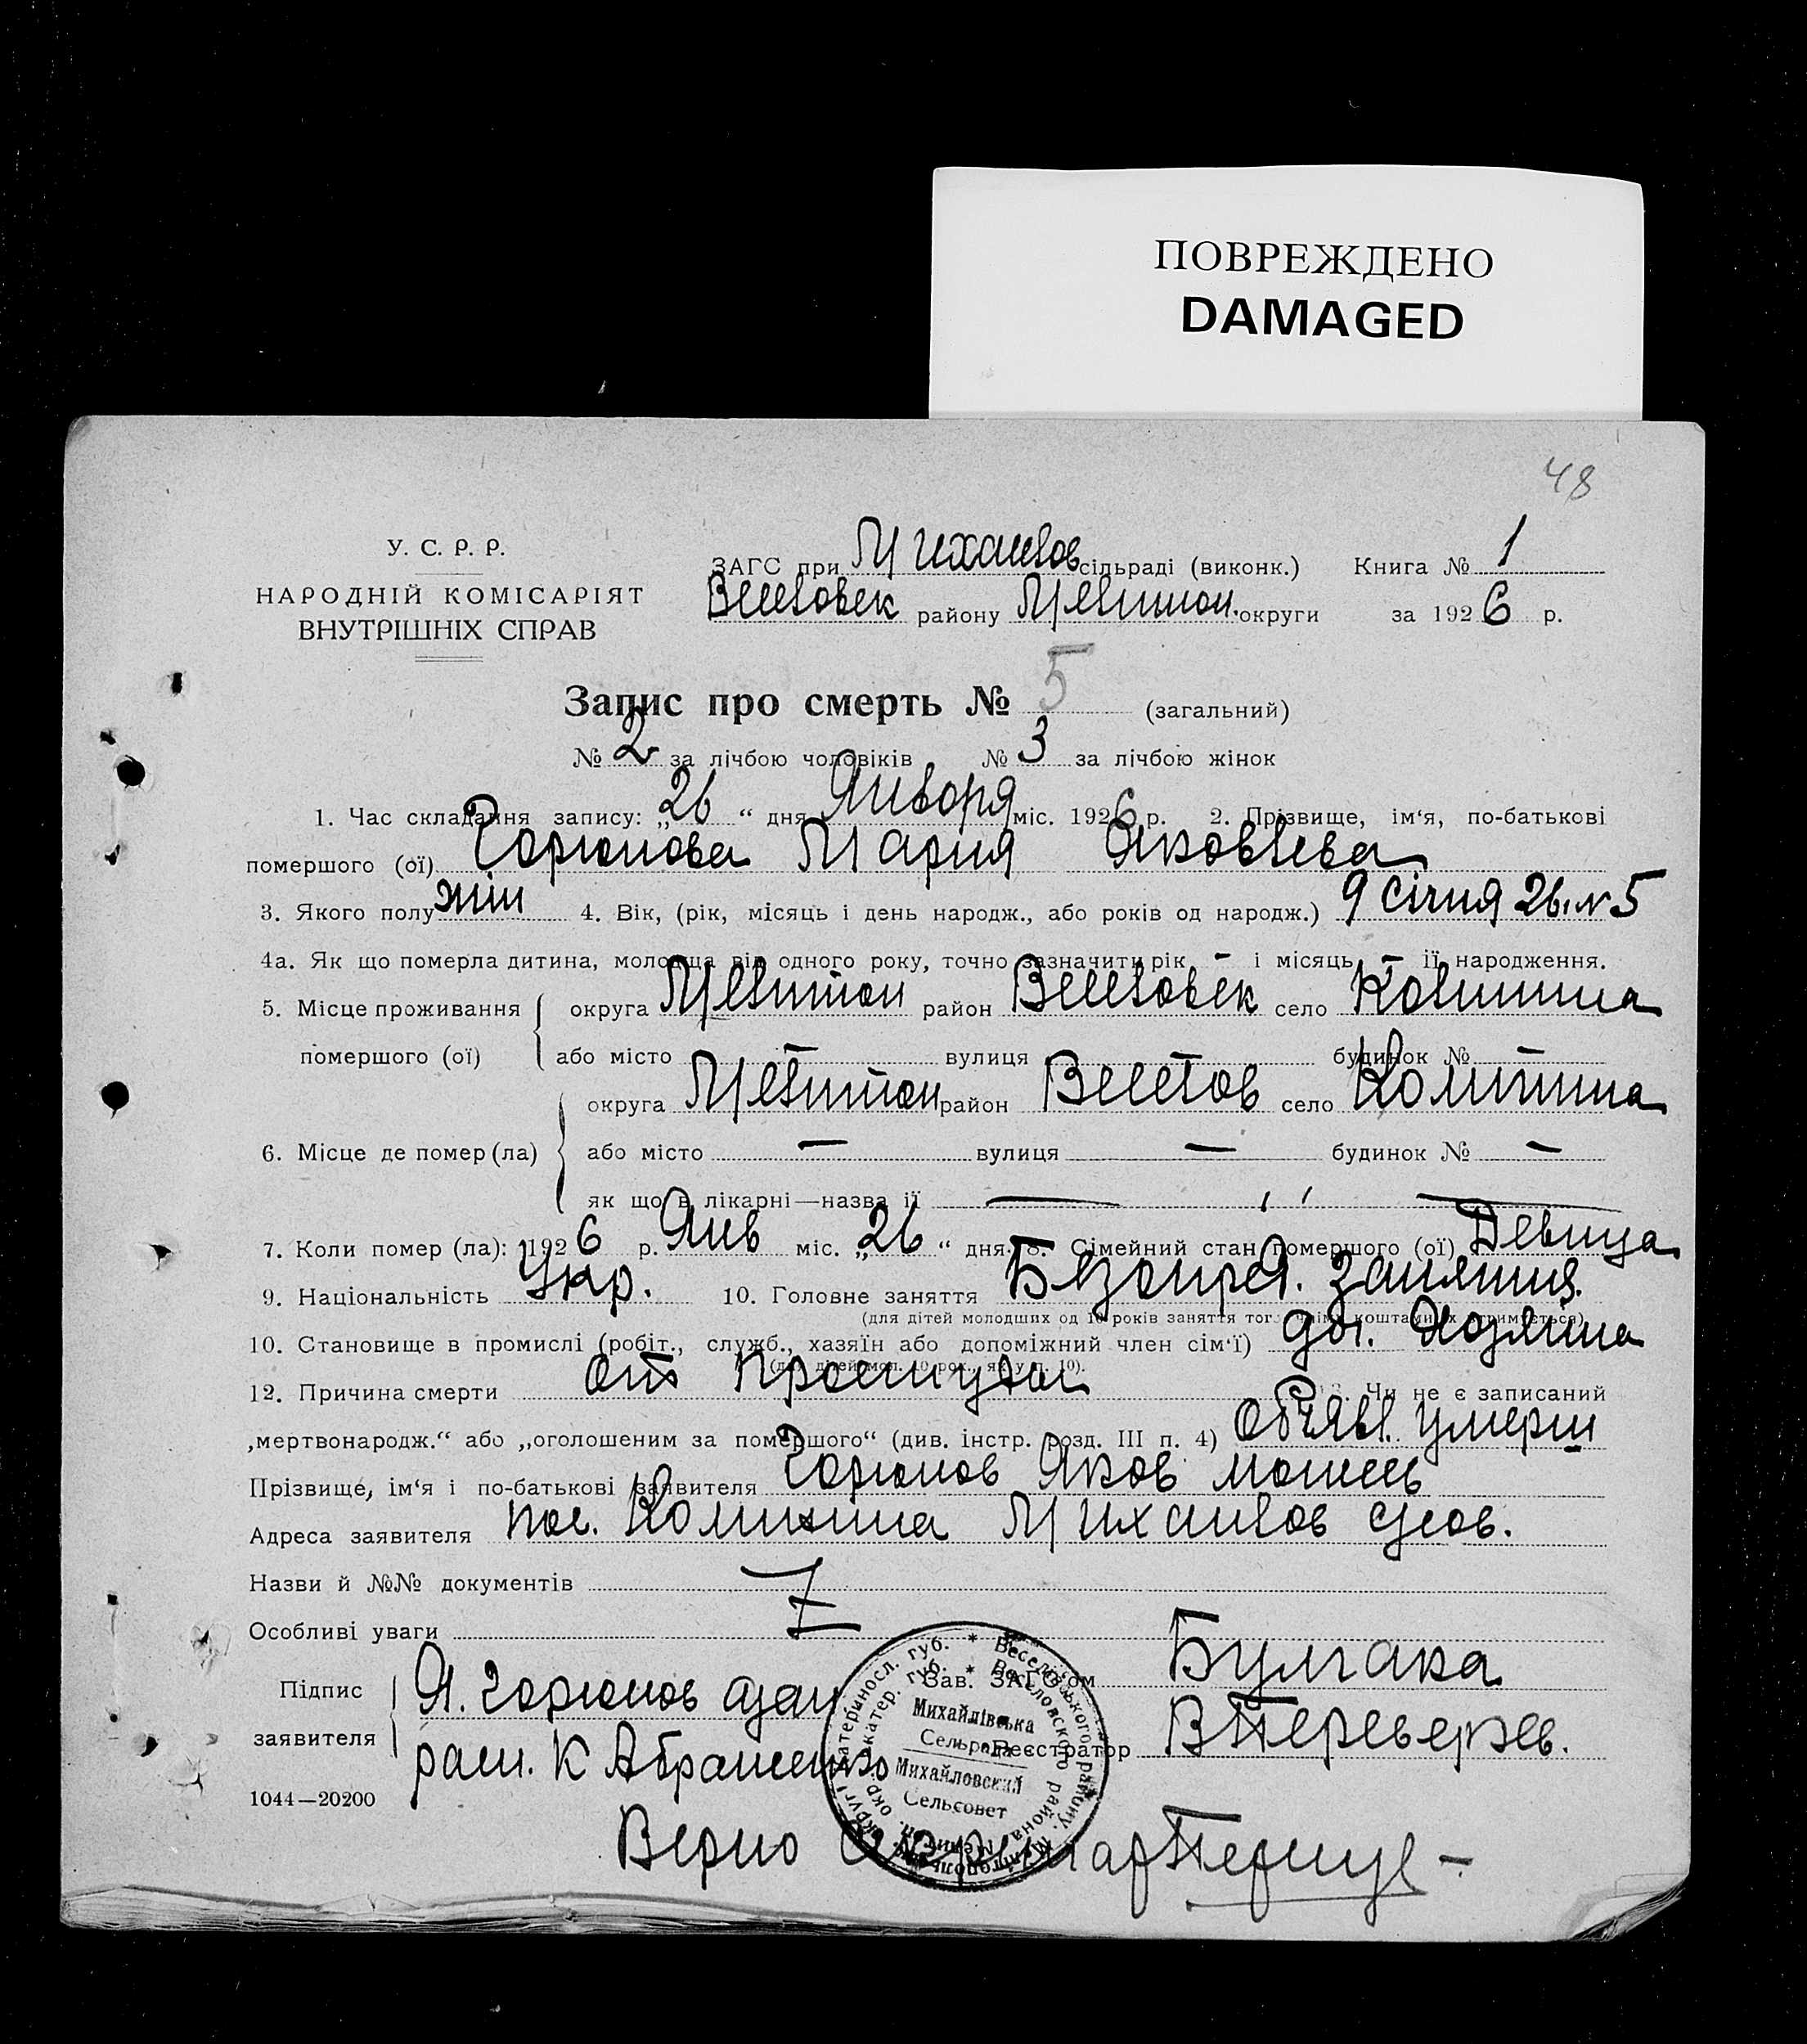 ПОВРЕЖДЕНО
DAMAGED
48
У. С. Р. Р.
НАРОДНІЙ КОМІСАРІЯТ
ВНУТРІШНІХ СПРАВ
ЗАГС при Михайлов сільраді (виконк.) Книга № 1
Веселовск району Мелитоп. округи за 1926 р.
Запис про смерть № 5 (загальний)
№ 2 за лічбою чоловіків № 3 за лічбою жінок
1. Час складання запису: „26“ дня Января міс. 1926 р. 2. Прізвище, ім‘я, по-батькові
помершого (ої) Горюнова Мария Яковлева
3. Якого полу жін 4. Вік, (рік, місяць і день народж., або років од народж.) 9 січня 26. № 5
4а. Як що померла дитина, молодща від одного року, точно зазначити рік - і місяць - її народження.
5. Місце проживання округа Мелитоп район Веселовск село
помершого (ої) або місто — вулиця будинок № —
округа Мелитоп район Веселов село
6. Місце де помер (ла) або місто — вулиця — будинок № —
як що в лікарні—назва її —
7. Коли помер (ла): 1926 р. Янв міс. „26“ дня 8. Сімейний стан помершого (ої) Девица
9. Національність Укр. 10. Головне заняття Безопред. занятия.
(для дітей молодших од 10 років заняття того, чиїми коштами їх утримується)
10. Становище в промислі (робіт., служб., хазяїн або допоміжний член сім‘ї) доч. Хозяина
(для дітей мол. 10 рок., як у п. 10).
12. Причина смерти от простуды 13. Чи не є записаний
„мертвонародж.“ або „оголошеним за помершого“ (див. інстр. розд. III п. 4) Объявл. умерш
Прізвище, ім‘я і по-батькові заявителя Горюнов Яков
Адреса заявителя пос. Михайлов
Назви й №№ документів
Особливі уваги
Підпис Я. Горюнов Зав. ЗАГС‘ом Булгака
заявителя К Абраменко Реєстратор
1044—20200
Михайлівська
Сельрада
Михайловский
Сельсовет
Верно